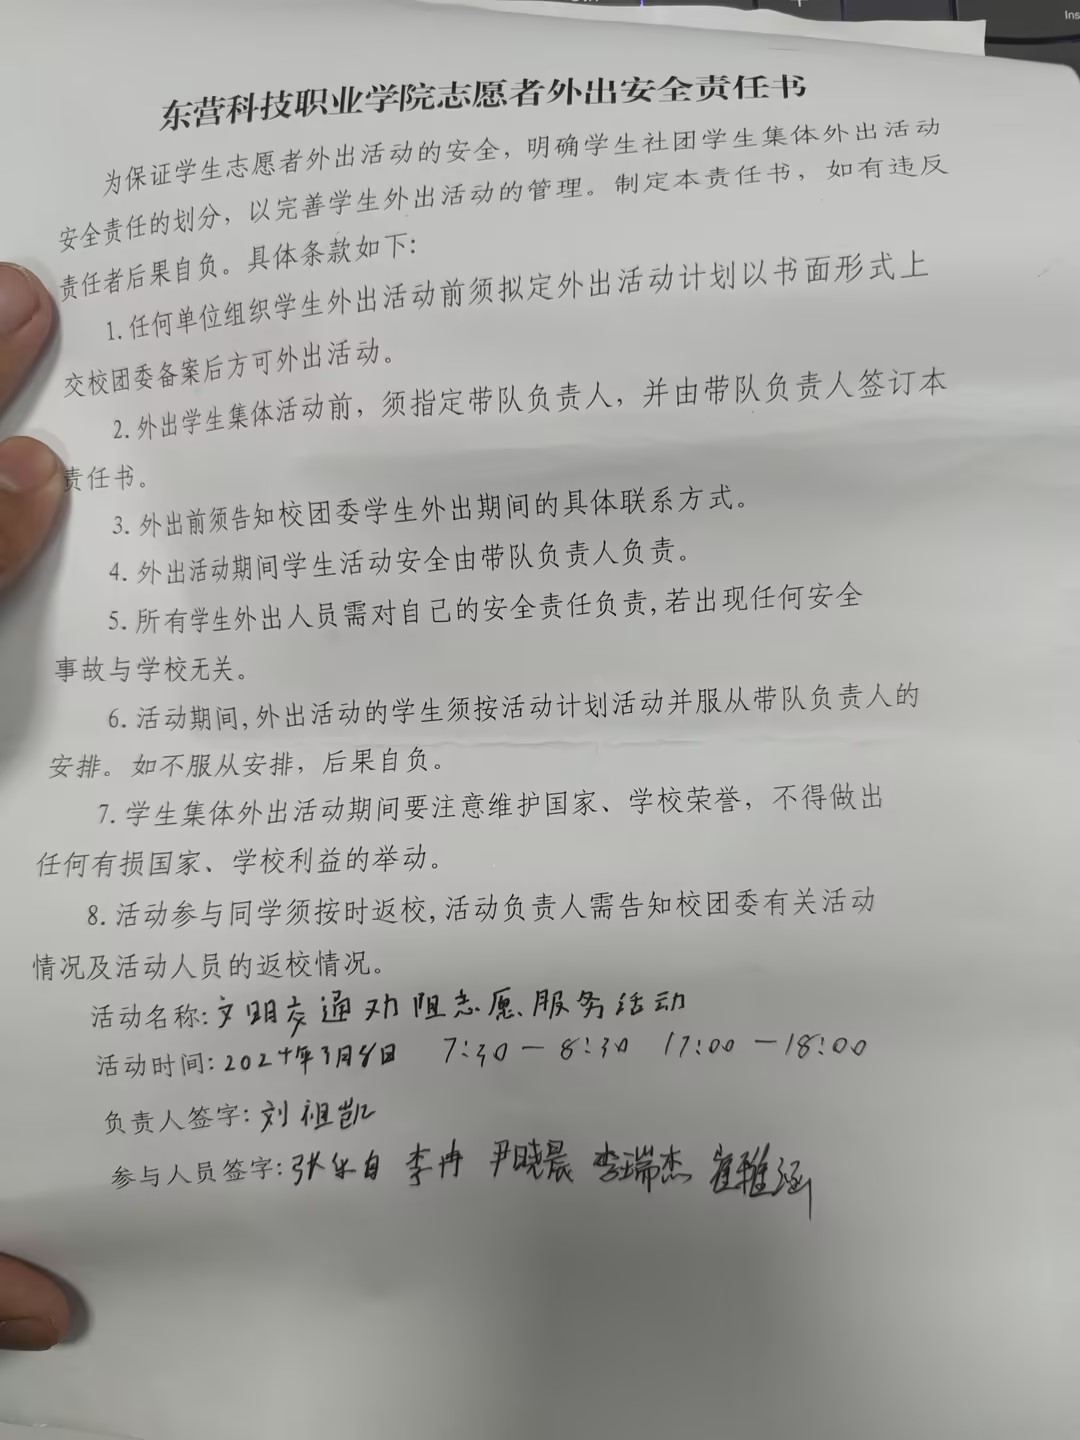 东营科技职业学院志愿者外出安全责任书
为保证学生志愿者外出活动的安全，明确学生社团学生集体外出活动
安全责任的划分，以完善学生外出活动的管理。制定本责任书，如有违反
责任者后果自负。具体条款如下：
1.任何单位组织学生外出活动前须拟定外出活动计划以书面形式上
交校团委备案后方可外出活动。
2.外出学生集体活动前，须指定带队负责人，并由带队负责人签订本
责任书。
3.外出前须告知校团委学生外出期间的具体联系方式。
4.外出活动期间学生活动安全由带队负责人负责。
5.所有学生外出人员需对自己的安全责任负责,若出现任何安全
事故与学校无关。
6.活动期间,外出活动的学生须按活动计划活动并服从带队负责人的
安排。如不服从安排，后果自负。
7.学生集体外出活动期间要注意维护国家、学校荣誉，不得做出
任何有损国家、学校利益的举动。
8.活动参与同学须按时返校,活动负责人需告知校团委有关活动
情况及活动人员的返校情况。
活动名称:文明交通劝阻志愿服务活动
活动时间:2024年3月8日 7:30—8:30 17:00—18:00
负责人签字:刘祖凯
参与人员签字:张乐自 李冉 尹晓晨 李瑞杰 崔雅涵
Ins